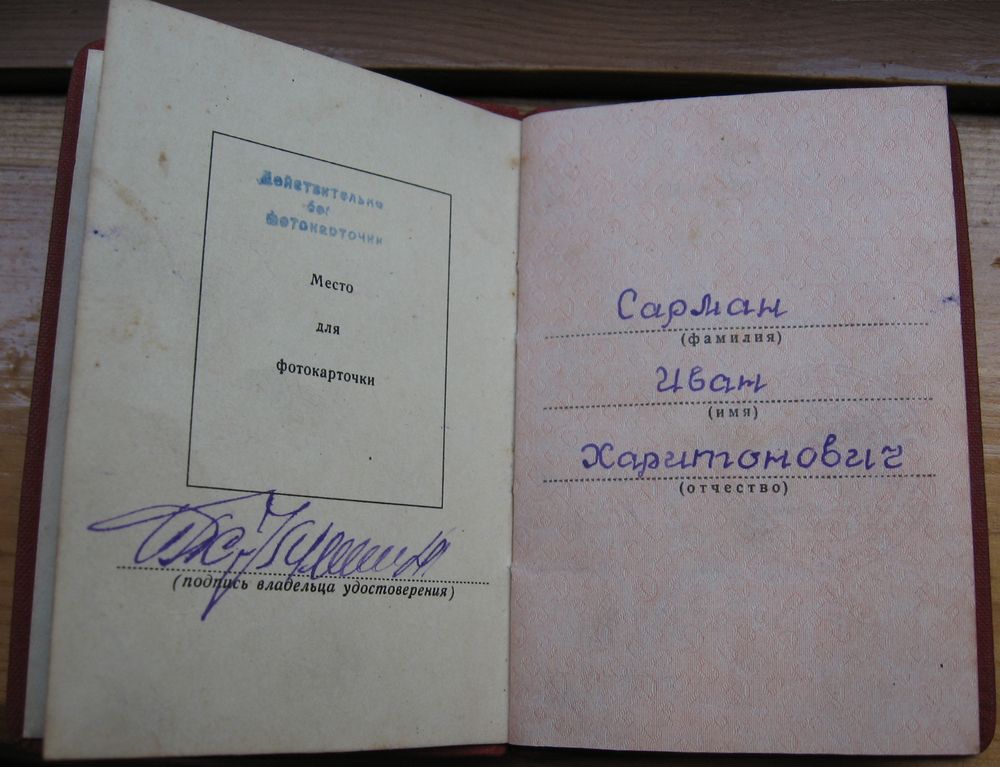 Действительно
без
фотокарточки
Место
для
фотокарточки
(подпись владельца удостоверения)
Сарман
(фамилия)
Иван
(имя)
Харитонович
(отчество)